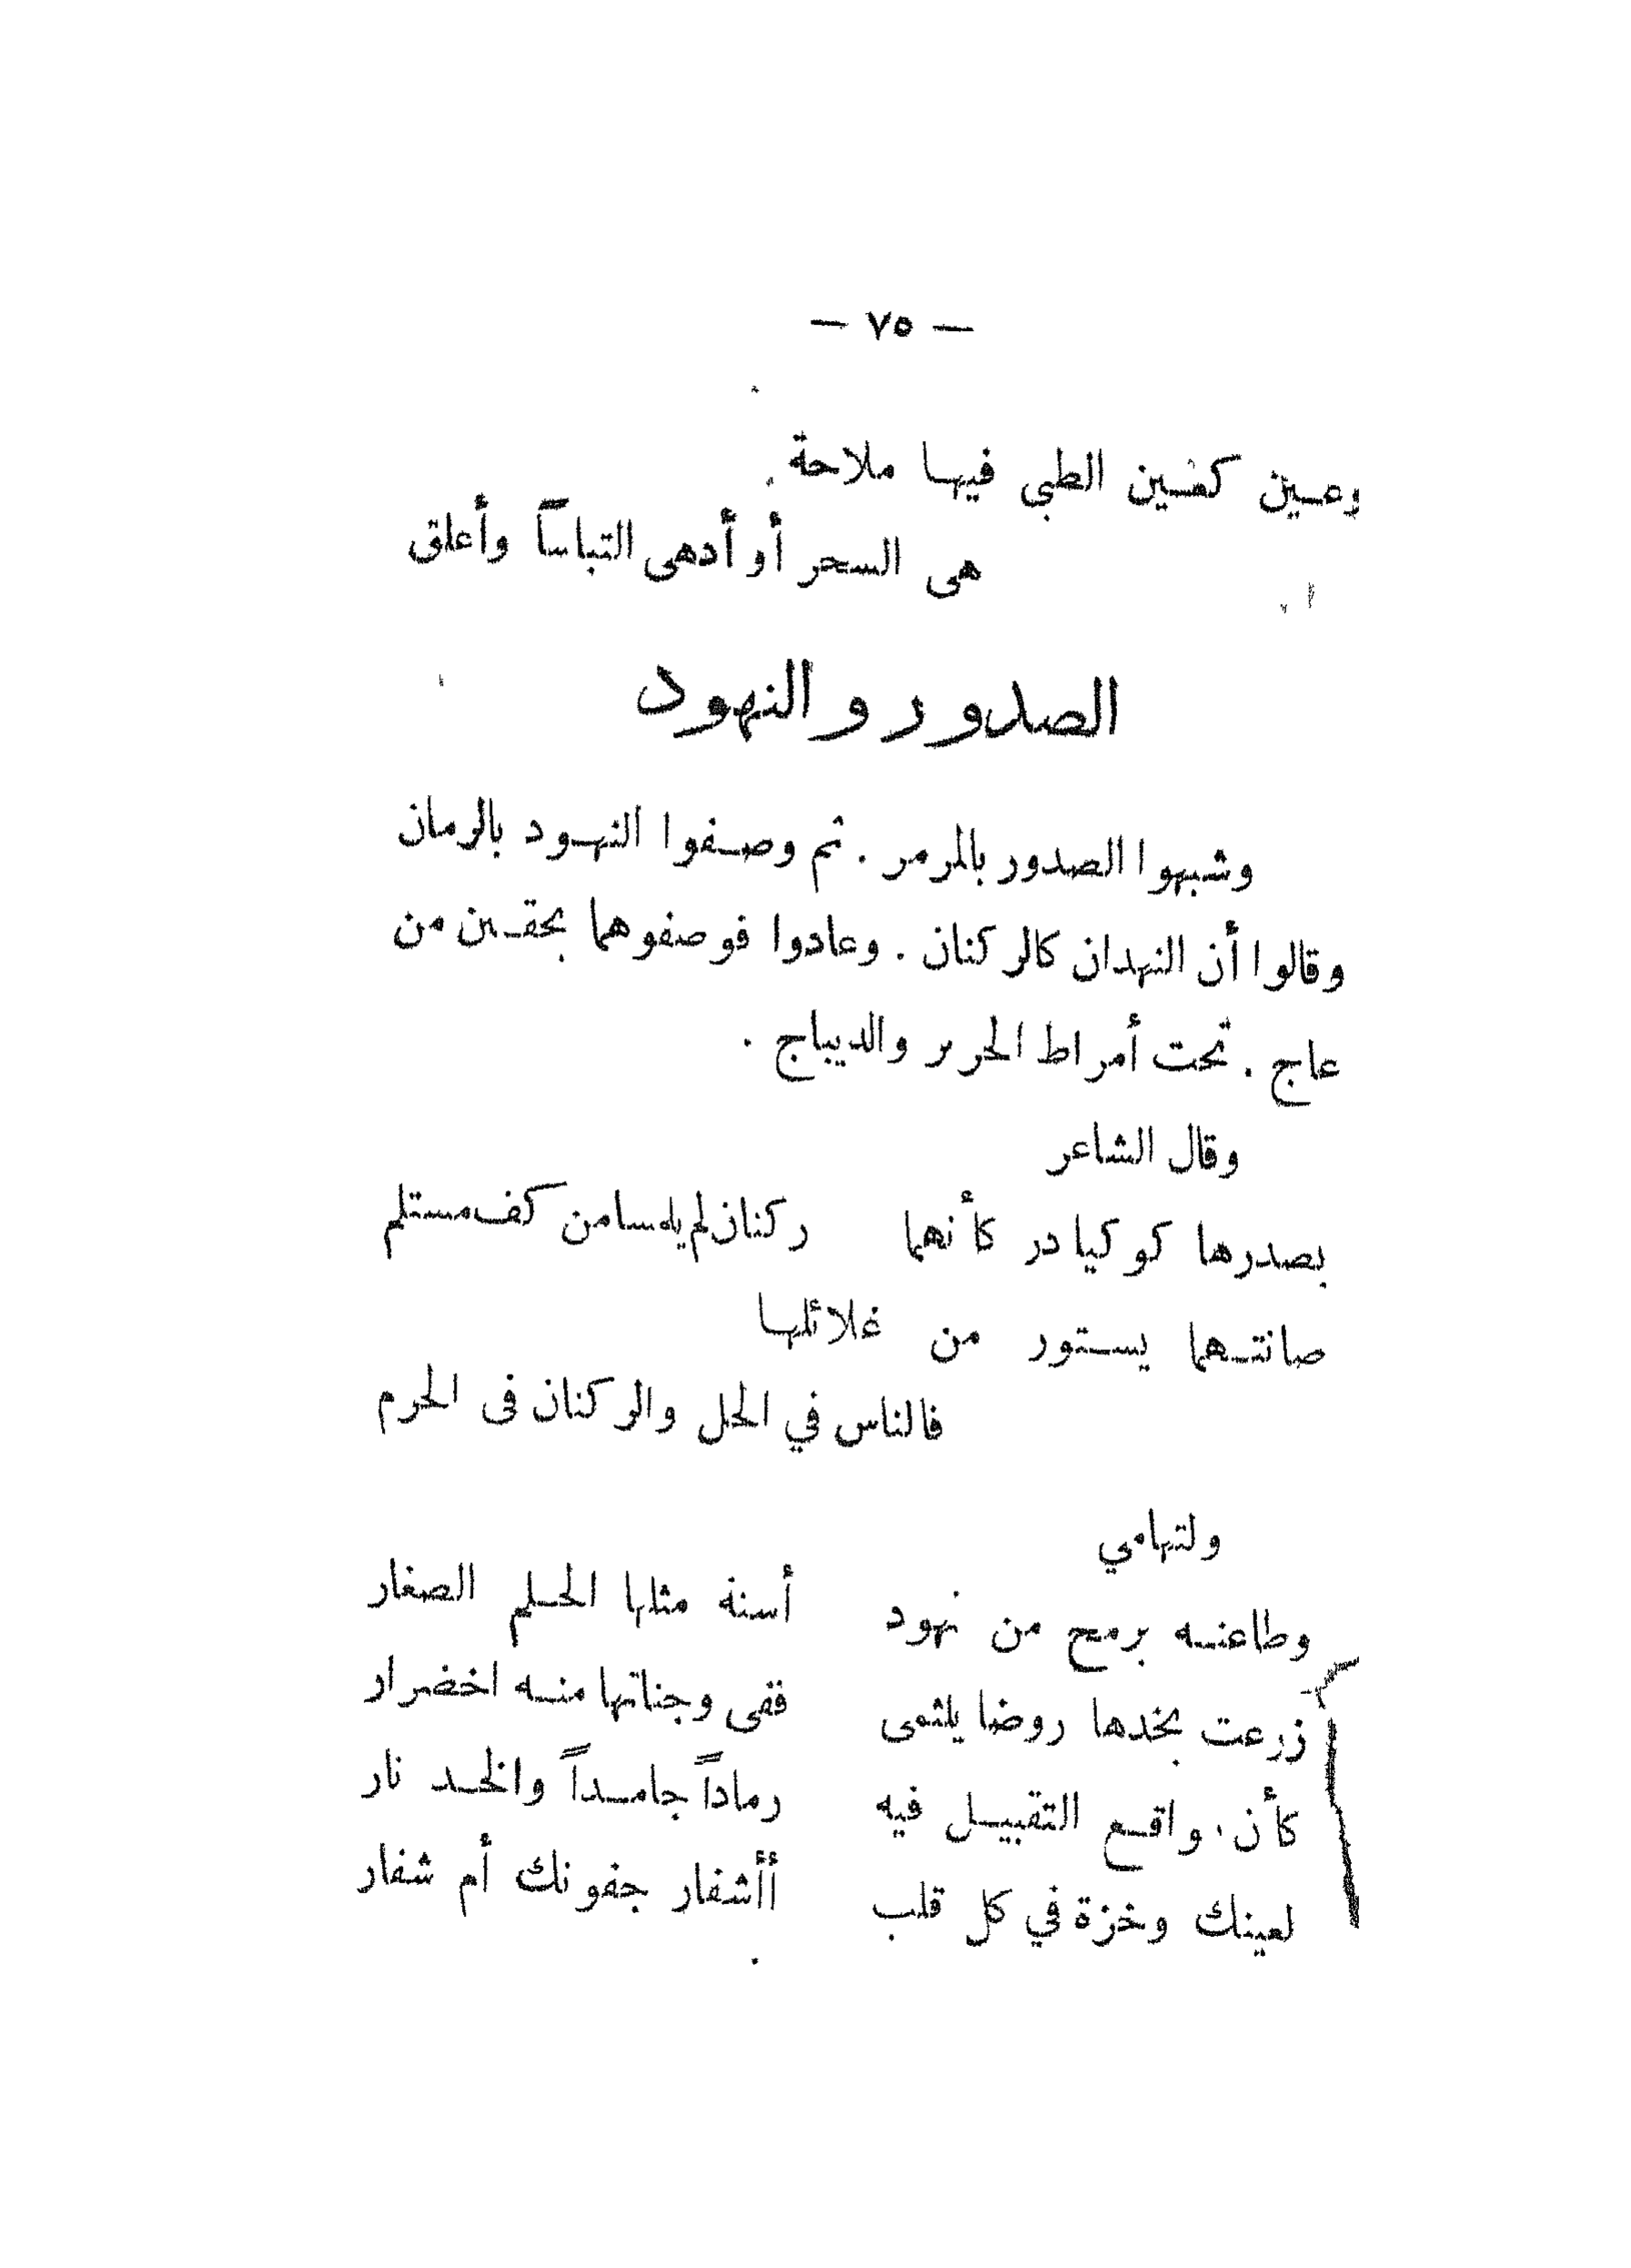 — ٧٥ —
وعـين كعـين الظبى فيهـا ملاحة
هى السحر أو أدهى التباساً وأعلق
الصدور والنهود
وشبهوا الصدور بالمرمر . ثم وصـفوا النهـود بالرمان
وقالوا أن النهدان كالركنان . وعادوا فوصفوهما بحقـين من
عاج . تحت أمراط الحرير والديباج .
وقال الشاعر
بصدرها كوكبا در كأنهما ركنان لم يلمسا من كف مستلم
صانتـهما بستور من غلائلها
فالناس في الحل والركنان فى الحرم
ولتهامي
وطاعنـه برمح من نهود أسنة مثلها الحـلم الصغار
زرعت بخدها روضا بلثمى ففى وجناتها منـه اخضرار
كأن واقـع التقبيـل فيه رماداً جامـداً والخـد نار
لعينك وخزة في كل قلب أأشفار جفونك أم شفار